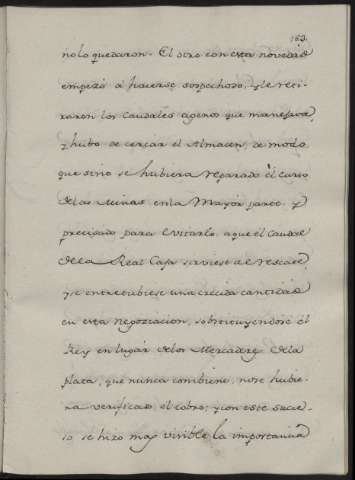 163.
nolo quedaron. El otro con esta novedad
empezó á hacerse sospechoso, y le reti-
raron los caudales agenos que manejava,
y hubo de cerrar el Almacen, de modo
que sino se hubiera reparado el curso
de las Minas en la Mayor parte. y
precisado para evitarlo. a que el caudal
de la Real Caja sirviese al rescate,
y se entretubiese una crecida cantidad
en esta negociacion, sobstituyendose el
Rey en lugar de los Mercaderes de la
plata, que nunca combiene, no se hubie-
ra verificado el cobro; y con este suce-
so se hizo mas visible la importancia